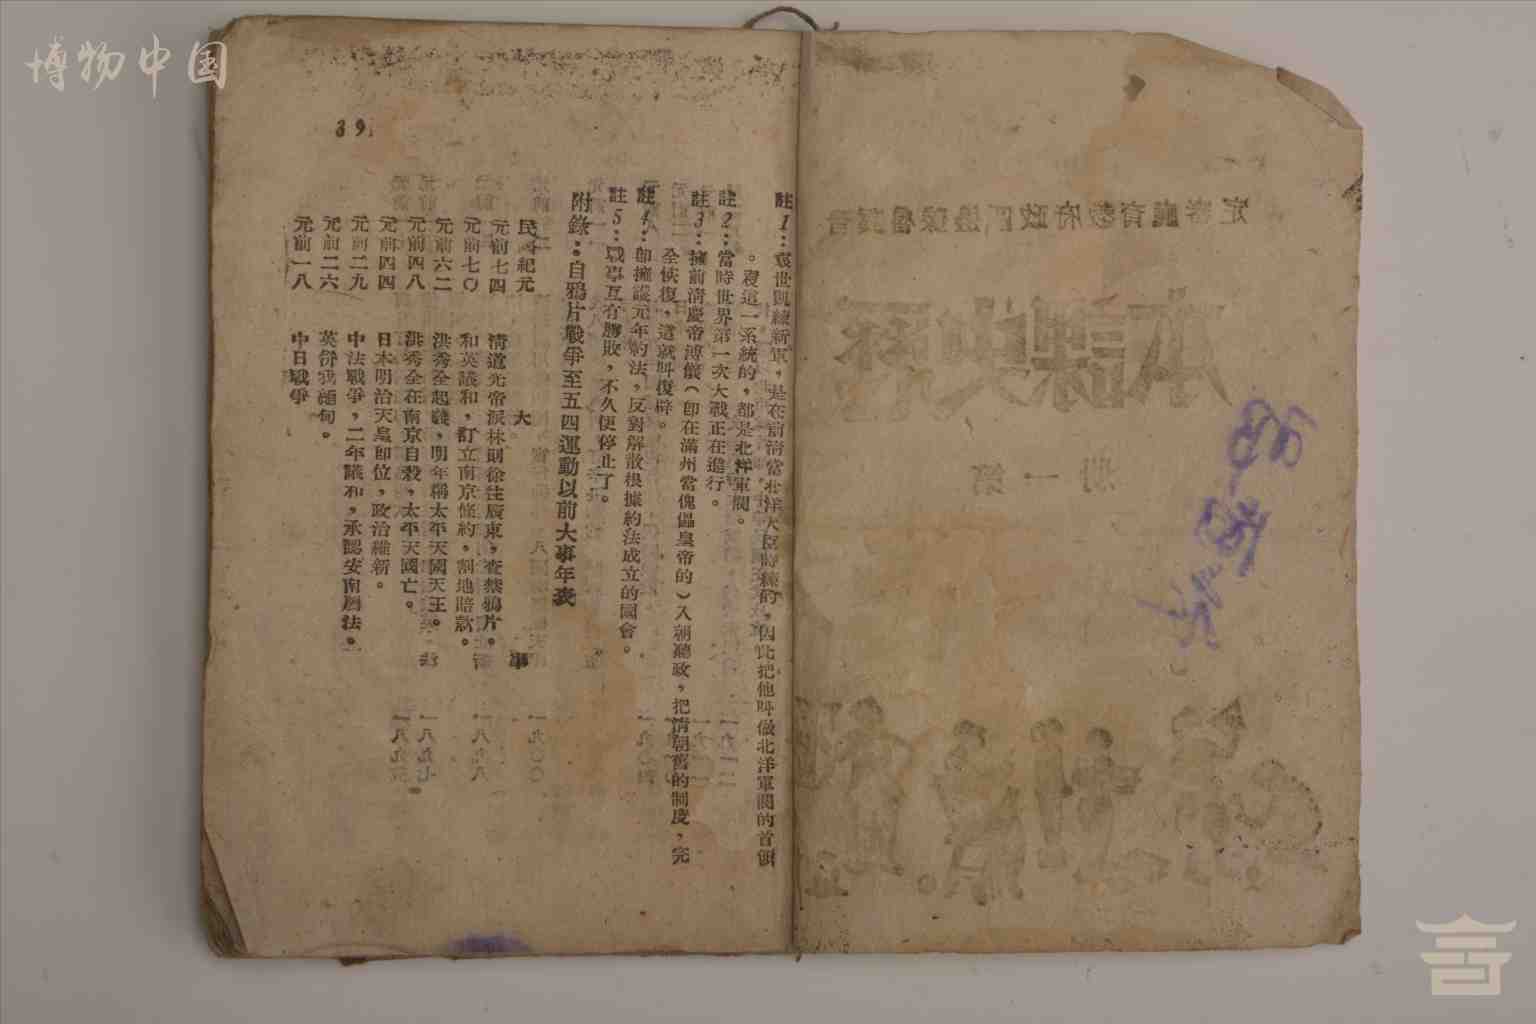 博物中国
39
註1：袁世凱練新軍，是在前清當北洋大臣時練的，因此把他叫做北洋軍閥的首領
。袁這一系統的，都是北洋軍閥。
註2：當時世界第一次大戰正在進行。
註3：擁前清廢帝溥儀（即在滿州當傀儡皇帝的）入朝聽政，把清朝舊的制度，完
全恢復，這就叫復辟。
註4：即擁護元年約法，反對解散根據約法成立的國會。
註5：戰事互有勝敗，不久便停止了。
附錄：自鴉片戰爭至五四運動以前大事年表
民國紀元 大 事
元前七四 清道光帝派林則徐往廣東，查禁鴉片。
元前七〇 和英議和，訂立南京條約，割地賠款。
元前六二 洪秀全起義，明年稱太平天國天王。
元前四八 洪秀全在南京自殺，太平天國亡。
元前四四 日本明治天皇即位，政治維新。
元前二九 中法戰爭，二年議和，承認安南屬法。
元前二六 英併我緬甸。
元前一八 中日戰爭
晉冀魯豫邊區政府教育廳審定
歷史課本
第一册